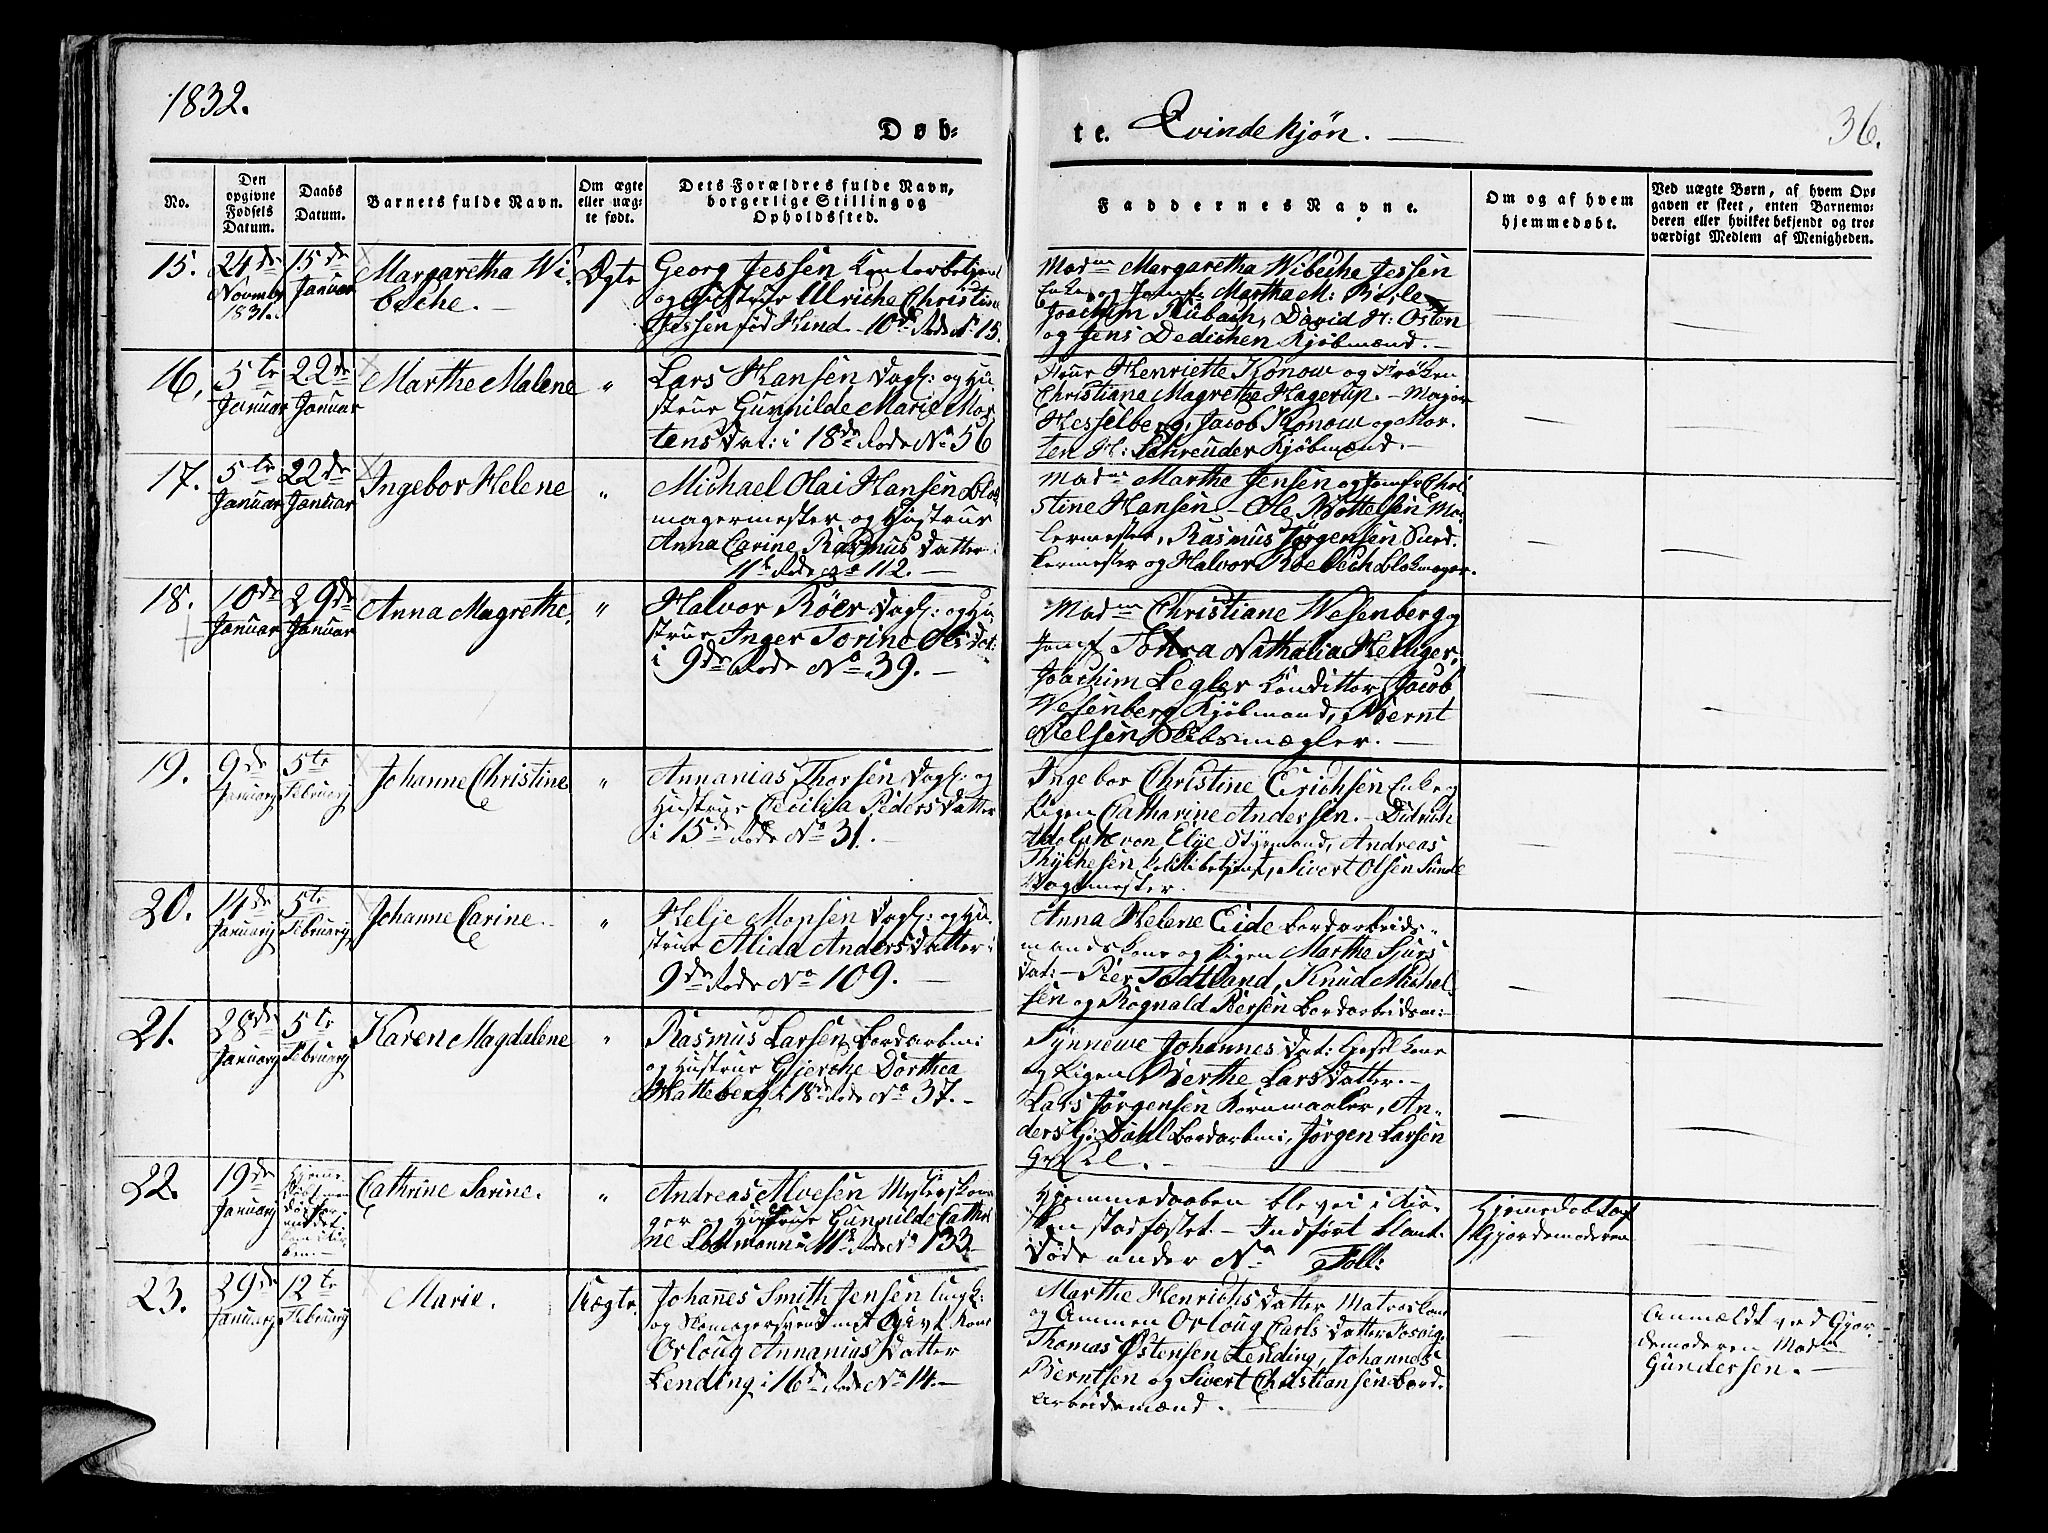 1832.
Døb-
te. Qvindekjøn. —
36.
No.
Den opgivne Fødsels Datum.
Daabs Datum.
Barnets fulde Navn.
Om ægte eller uæg- te født.
Dets Forældres fulde Navn, borgerlige Stilling og Opholdssted.
Faddernes Navne.
Om og af hvem hjemmedøbt.
Ved uægte Børn, af hvem Op- gaven er skeet, enten Barnemo- deren eller hvilket bekjendt og tro- værdigt Medlem af Menigheden.
15.
24de
Novembr
1831.
15de
Januar
Margaretha Wi-
beche.
Ægte
Georg Jessen Contorbetjent
og Hustrue Ulriche Christine
Jessen fød Hind 10de Rode No 15.
Madme Margaretha Wibeche Jessen
Enke og Jomf: Martha M:
Joachim Rübach, David H: Osten
og Jens Dedichen Kjøbmænd. —
16.
5te
Januar
22de
Januar
Marthe Malene
"
Lars Hansen Dagl: og Hu-
strue Gunnilde Marie Mor-
tens Dat: i 18de Rode No 56
Frue Henriette Konow og Frøken
Christiane Magrethe Hagerup. — Major
Hesselberg, Jacob Konow og Mor-
ten H: Schreuder Kjøbmænd. —
17.
5te
Januar
22de
Januar
Ingebor Helene
"
Michael Olai Hansen Blok
magermester og Hustrue
Anna Carine Rasmus Datter
11te Rode No 112. —
Madme Marthe Jensen og Jomfr Chri-
stine Hansen — Ole Bottelsen Ma-
lermester, Rasmus Jørgensen Sned-
kermester og Halvor Roebech Blokmager.
18.
10de
Januar
29de
Januar
Anna Magrethe.
"
Halvor Röer Dagl: og Hu-
strue Inger Torine Ols Dat:
i 9de Rode No 39. —
Madme Christiane Wesenberg og
Jomf Nathalia Heltger,
Joachim Legler Konditter, Jacob
Wesenberg Kjøbmand, Bernt
Nielsen Skibsmægler. —
19.
9de
Januarij
5te
Februarij
Johanne Christine
"
Annanias Thorsen Dagl: og
Hustrue Cecilia Peders Datter
i 15de Rode No 31. —
Ingebor Christine Erichsen Enke og
Pigen Catharine Andersen. — Didrich
Adolph von Elye Styrmand, Andreas
Thychesen, Sivert Olsen
Vagtmester.
20.
14de
Januarij
5te
Februarij
Johanne Carine.
"
Helje Monsen Dagl: og Hu-
strue Alida Anders Datter
9de Rode No 109. —
Anna Helene Eide Bordarbeids-
mandskone og Pigen Marthe Sjurs
Dat: — Peer Todtland, Knud Michel-
sen og Rognald Bersen Bordarbeidsm:
21.
28de
Januarij
5te
Februarij
Karen Magdalene
"
Rasmus Larsen Bordarbmi
og Hustrue Gjerche Dorthea
Hatteberg i 18de Rode No 37. —
Synneve Johannes Dat:
og Pigen Berthe Lars Datter. —
Lars Jørgensen Kornmaaler, An-
ders G: Dahl Bordarbmi, Jørgen Larsen
22.
19de
Januarij
Hjemme-
Cathrine Sarine.
"
Andreas Alvesen
og Hustrue Gunnilde Cathri
ne Lohmann i 11te Rode No 133 —
Hjemmedaaben blev ei i Kir-
ken stadfæstet. — Indført blant
Døde under No Foll:
Hjemmedøbt af
Gjordemoderen
23.
29de
Januarij
12te
Februarij
Marie.
Uægte
Johannes Smith Jensen Ungk:
og Skomagersvend
Orloug Annanius Datter
Lending i 16de Rode No 14. —
Marthe Henrichs Datter Matroskone
og Ammen Orloug Carls Datter
Thomas Østensen Lending, Johannes
Berntsen og Sivert Christiansen Bord-
arbeidsmænd.
Anmeldt ved Gjor-
demoderen Madme
Gundersen. —